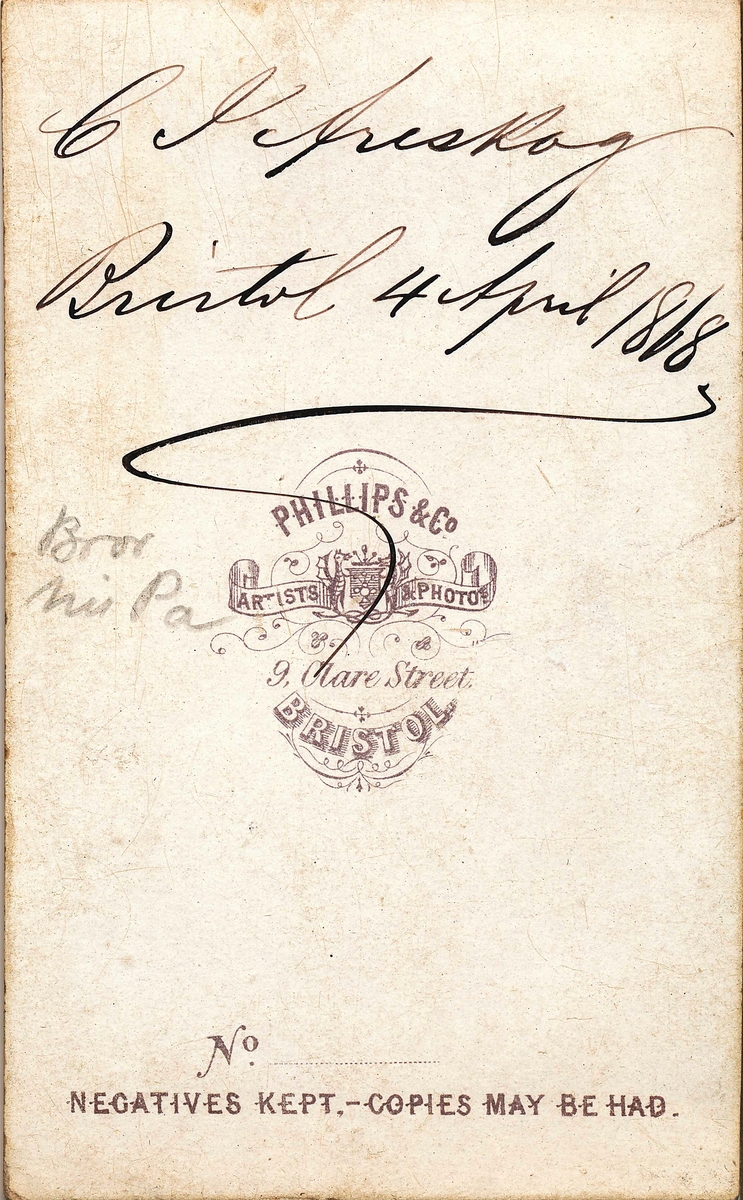 C I Areskog
Bristol 4 April 1868
PHILLIPS & Co
ARTISTS & PHOTOS
9, Clare Street.
BRISTOL.
Bror
Pa
No
NEGATIVES KEPT,-COPIES MAY BE HAD.